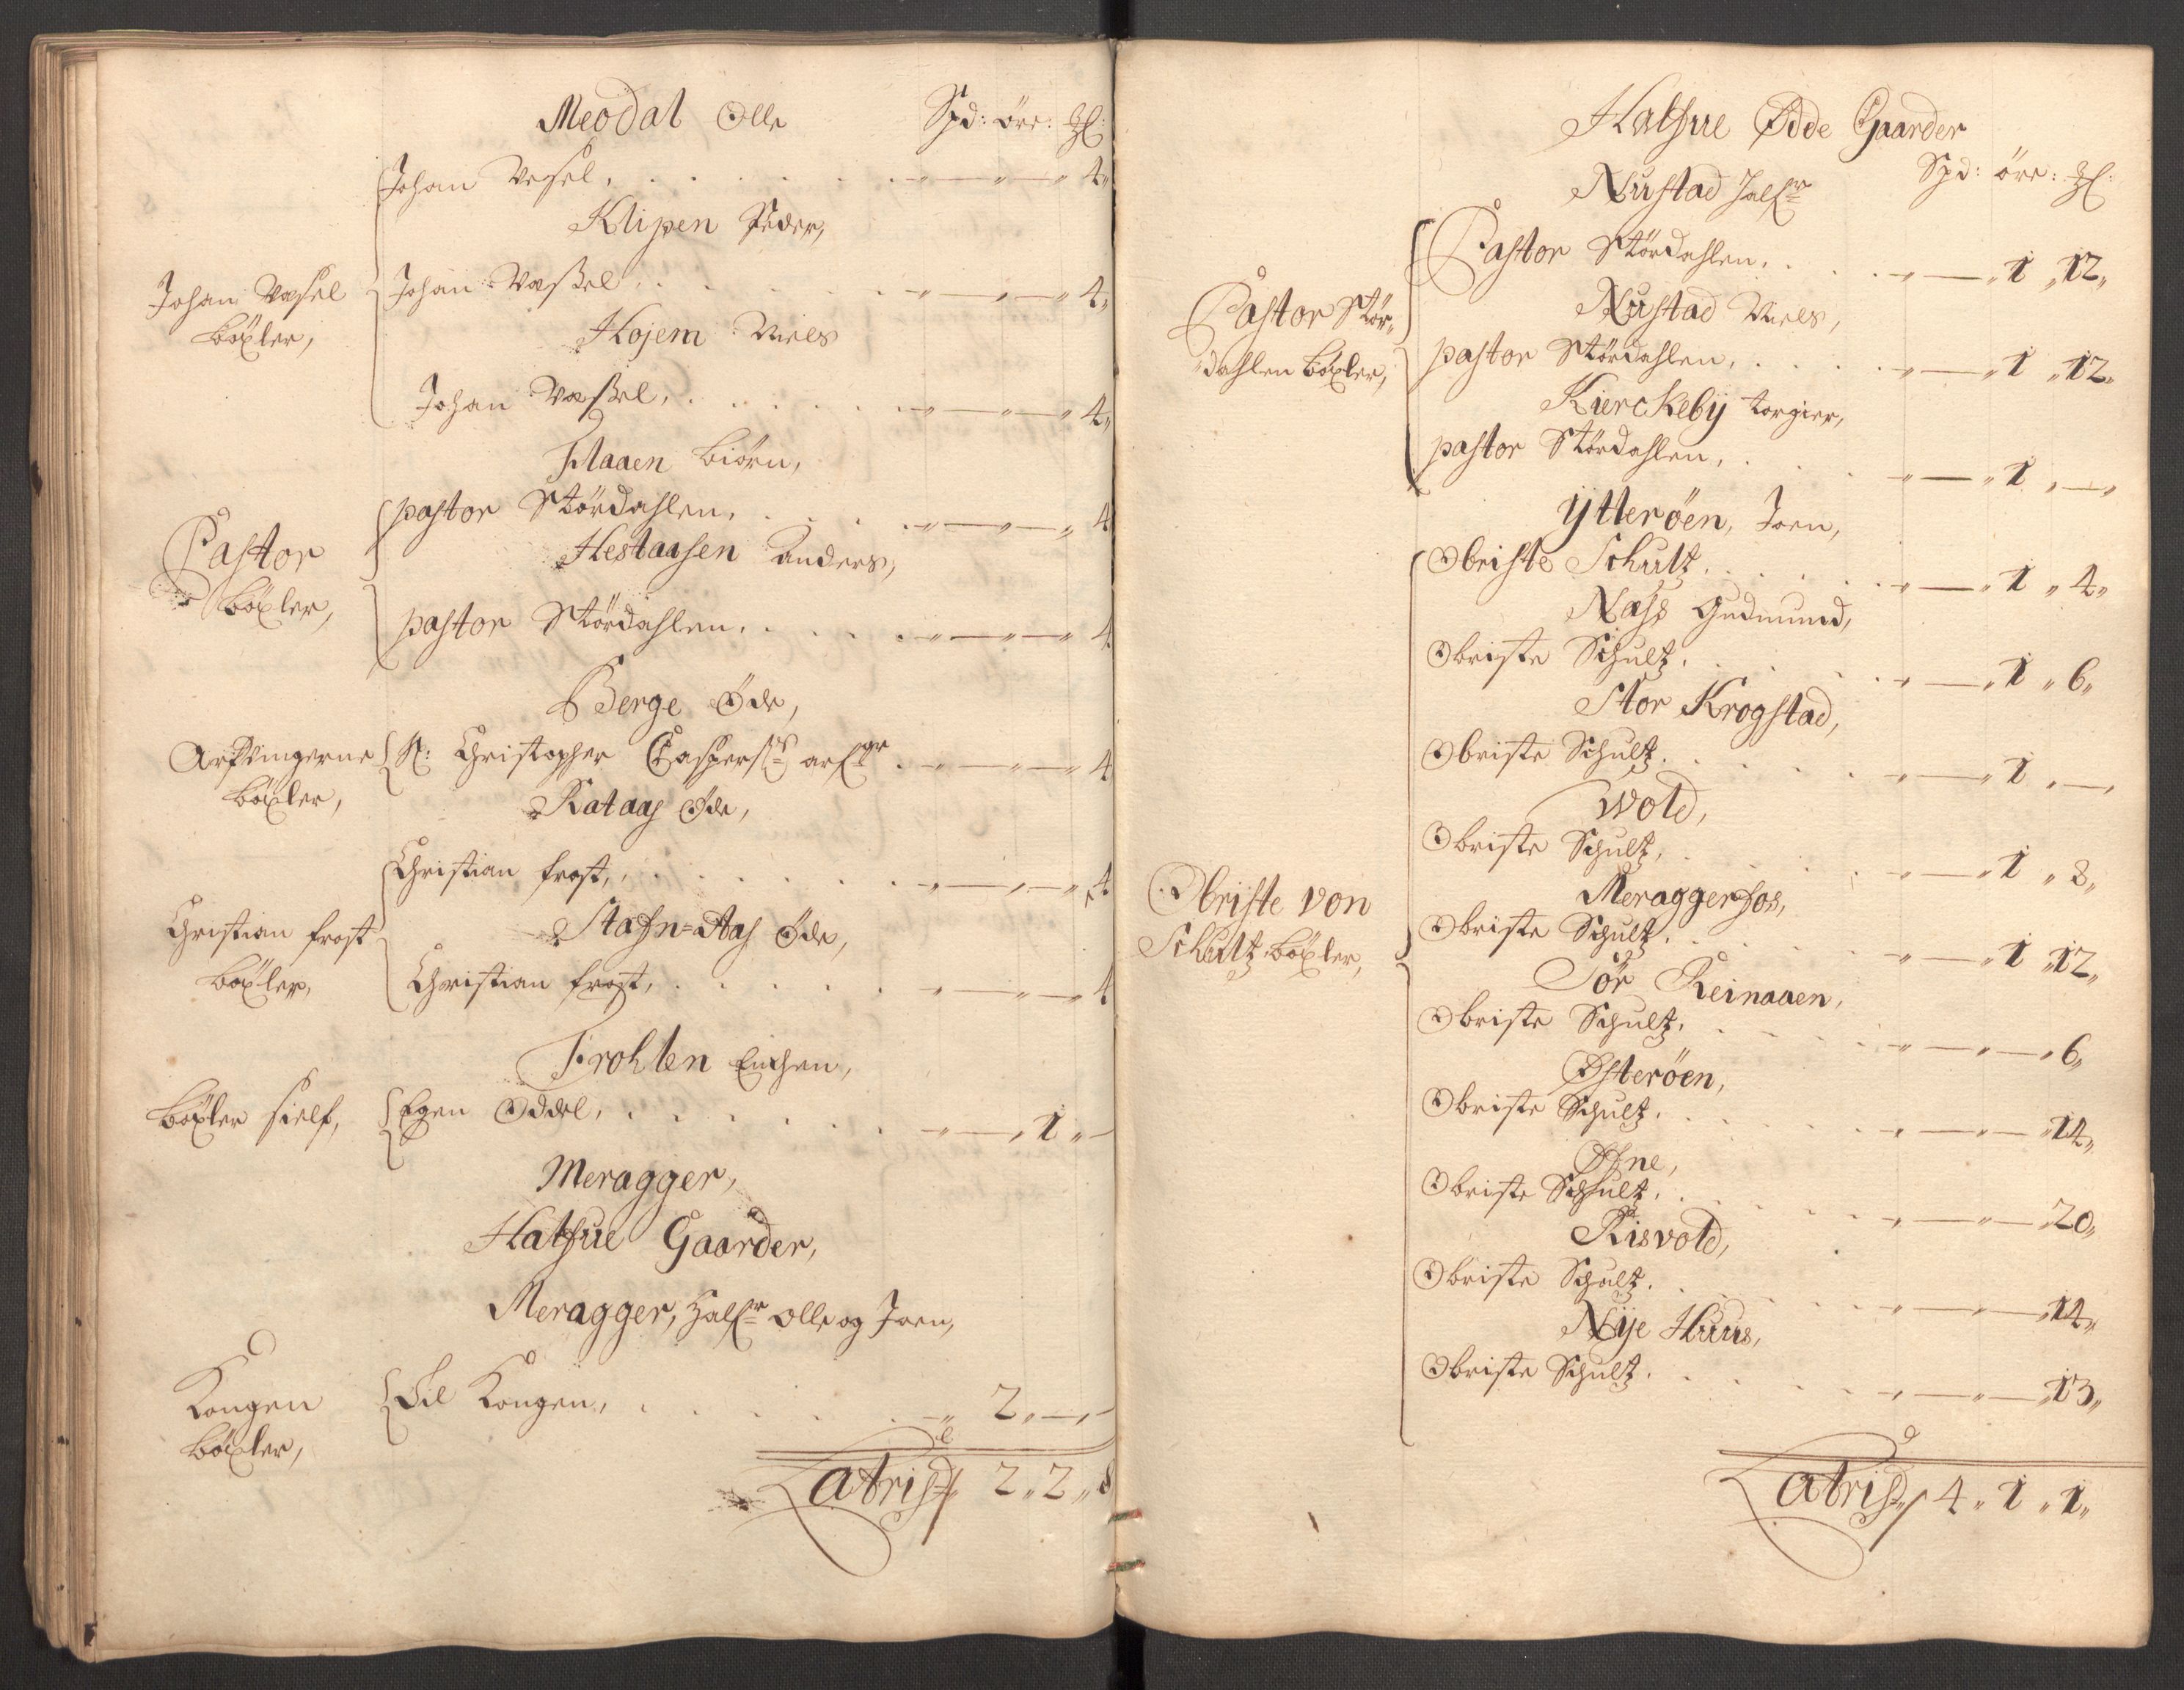 Meodal Olle Spd: öre: ₰:
Johan Vesel, . . . . . . . „ — „ — „ 4„
Klipen Peder,
Johan Vasel
böxler,
Johan Vassel, . . . . . „ — „ — „ 4„
Hojem Niels
Johan Vassel, . . . . . „ — „ — „ 4„
Flaaen Biörn,
Pastor
böxler,
pastor Stördahlen, . . . . „ — „ — „ 4
Hestaasen Anders,
pastor Stördahlen, . . . . „ — „ — „ 4
Berge Öde,
Arfvingerne
böxler,
Sl: Christopher Caspers: arfgr . „ — „ — „ 4
Rataas Öde,
Christian frost, . . . . . . „ — „ — „ 4
Christian frost
böxler,
Stafn=Aas Öde,
Christian frost, . . . . . „ — „ — „ 4
Frohten Enchen,
böxler sielf,
Egen Oddel, . . . . . . „ — „ 1 „ —
Meragger,
Halfue Gaarder,
Meragger, halfr Olle og Joen,
Kongen
böxler,
Til Kongen, . . . . . „ 2 „ — „ —
Latris 2 „ 2 „ 8
Halfue Ødde Gaarder
Nustad halfr Spd: öre: ₰:
Pastor Stördahlen, . . . . „ — „ 1 „ 12„
Pastor Stör„
dahlen böxler,
Nustad Niels,
pastor Stördahlen, . . . . „ — „ 1 „ 12„
Kierckebÿ torgier,
pastor Stördahlen, . . . „ — „ 1 „ — „
Ÿtteröen, Joen,
Obriste Schultz, . . . . . „ — „ 1 „ 4„
Næss Gudmund,
Obriste Schultz, . . . . „ — „ 1 „ 6„
Stor Krogstad,
Obriste Schultz, . . . . . „ — „ 1 „ — „
Wold,
Obriste Schultz, . . . . „ — „ 1 „ 8„
Obriste von
Schultz böxler,
Meraggerhos,
Obriste Schultz, . . . . . „ — „ 1 „ 12„
Sör Reinaaen,
Obriste Schultz, . . . . „ — „ — „ 6„
Østeröen,
Obriste Schultz, . . . . . „ — „ — „ 14„
Øfne,
Obriste Schultz, . . . . . „ — „ — „ 20„
Risvold,
Obriste Schultz, . . . . . „ — „ — „ 14„
Nÿe Huus,
Obriste Schultz, . . . . . „ — „ — „ 13„
Latris 4 „ 1 „ 1„